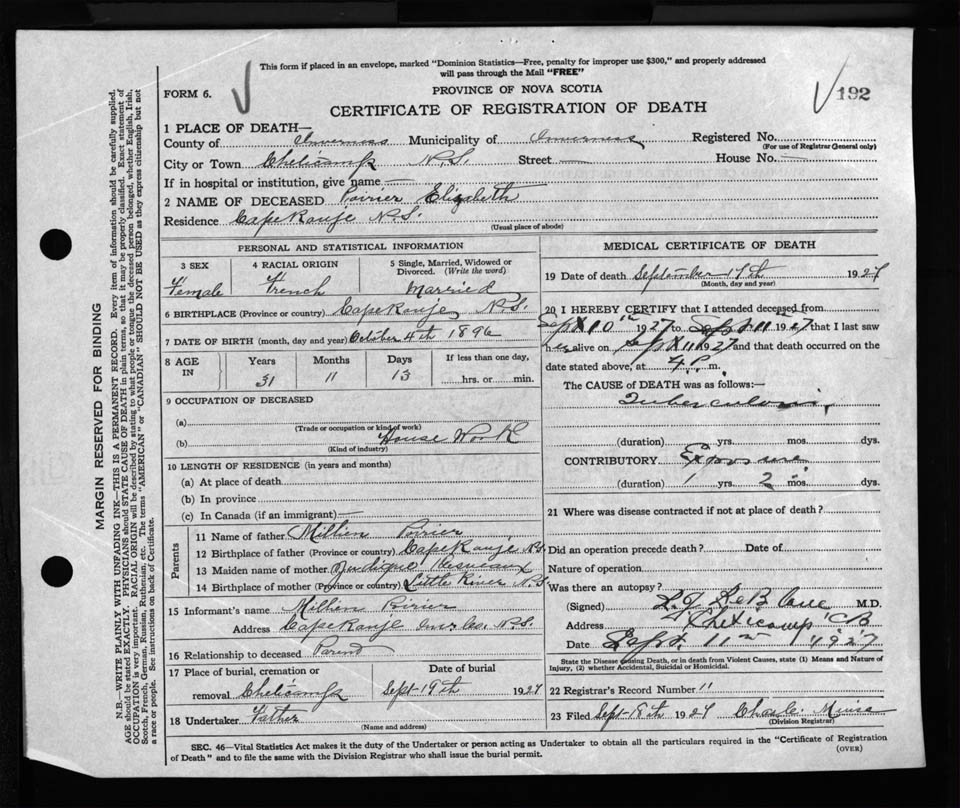 This form if placed in an envelope, marked "Dominion Statistics—Free, penalty for improper use $300," and properly addressed
will pass through the Mail "FREE"
FORM 6.
PROVINCE OF NOVA SCOTIA
192
CERTIFICATE OF REGISTRATION OF DEATH
1 PLACE OF DEATH—
County of Inverness Municipality of Inverness Registered No.
(For use of Registrar General only)
City or Town Cheticamp N.S. Street — House No. —
If in hospital or institution, give name —
2 NAME OF DECEASED Poirier Elizabeth
Residence Cape Rouge N.S.
(Usual place of abode)
PERSONAL AND STATISTICAL INFORMATION
3 SEX 4 RACIAL ORIGIN 5 Single, Married, Widowed or
Divorced. (Write the word)
Female French Married
6 BIRTHPLACE (Province or country) Cape Rouge N.S.
7 DATE OF BIRTH (month, day and year) October 4th 1896
8 AGE Years Months Days If less than one day,
IN 31 11 13 hrs. or min.
9 OCCUPATION OF DECEASED
(a)
(Trade or occupation or kind of work)
(b) House Work
(Kind of industry)
10 LENGTH OF RESIDENCE (in years and months)
(a) At place of death
(b) In province
(c) In Canada (if an immigrant) —
Parents
11 Name of father Millien Poirier
12 Birthplace of father (Province or country) Cape Rouge N.S.
13 Maiden name of mother
14 Birthplace of mother (Province or country) Little River N.S.
15 Informant's name Millien Poirier
Address Cape Rouge N.S.
16 Relationship to deceased Parend
17 Place of burial, cremation or Date of burial
removal Cheticamp Sept 19th 1927
18 Undertaker Father
(Name and address)
MEDICAL CERTIFICATE OF DEATH
19 Date of death September 17th 1927
(Month, day and year)
20 I HEREBY CERTIFY that I attended deceased from
Sept 10th 1927 to Sept 11th 1927 that I last saw
her alive on Sept 11 1927 and that death occurred on the
date stated above, at 4 P. m.
The CAUSE of DEATH was as follows:—
Tuberculosis,
(duration) yrs. mos. dys.
CONTRIBUTORY Exposure
(duration) 1 yrs. 2 mos. dys.
21 Where was disease contracted if not at place of death?
Did an operation precede death? Date of
Nature of operation
Was there an autopsy?
(Signed) LeBlanc M.D.
Address Cheticamp CB
Date Sept. 11th 1927
State the Disease causing Death, or in death from Violent Causes, state (1) Means and Nature of
Injury, (2) whether Accidental, Suicidal or Homicidal.
22 Registrar's Record Number 11
23 Filed Sept 18th 1927 Muise
(Division Registrar)
SEC. 46—Vital Statistics Act makes it the duty of the Undertaker or person acting as Undertaker to obtain all the particulars required in the "Certificate of Registration
of Death" and to file the same with the Division Registrar who shall issue the burial permit.
(OVER)
MARGIN RESERVED FOR BINDING
N.B.—WRITE PLAINLY WITH UNFADING INK—THIS IS A PERMANENT RECORD. Every item of information should be carefully supplied.
AGE should be stated EXACTLY. PHYSICIANS should STATE CAUSE OF DEATH in plain terms, so that it may be properly classified. Exact statement of
OCCUPATION is very important. RACIAL ORIGIN will be described by stating to what people or tongue the deceased person belonged, whether English, Irish,
Scotch, French, German, Russian, Ruthenian, etc. The terms "AMERICAN" or "CANADIAN" SHOULD NOT BE USED as they express citizenship but not
a race or people. See instructions on back of Certificate.